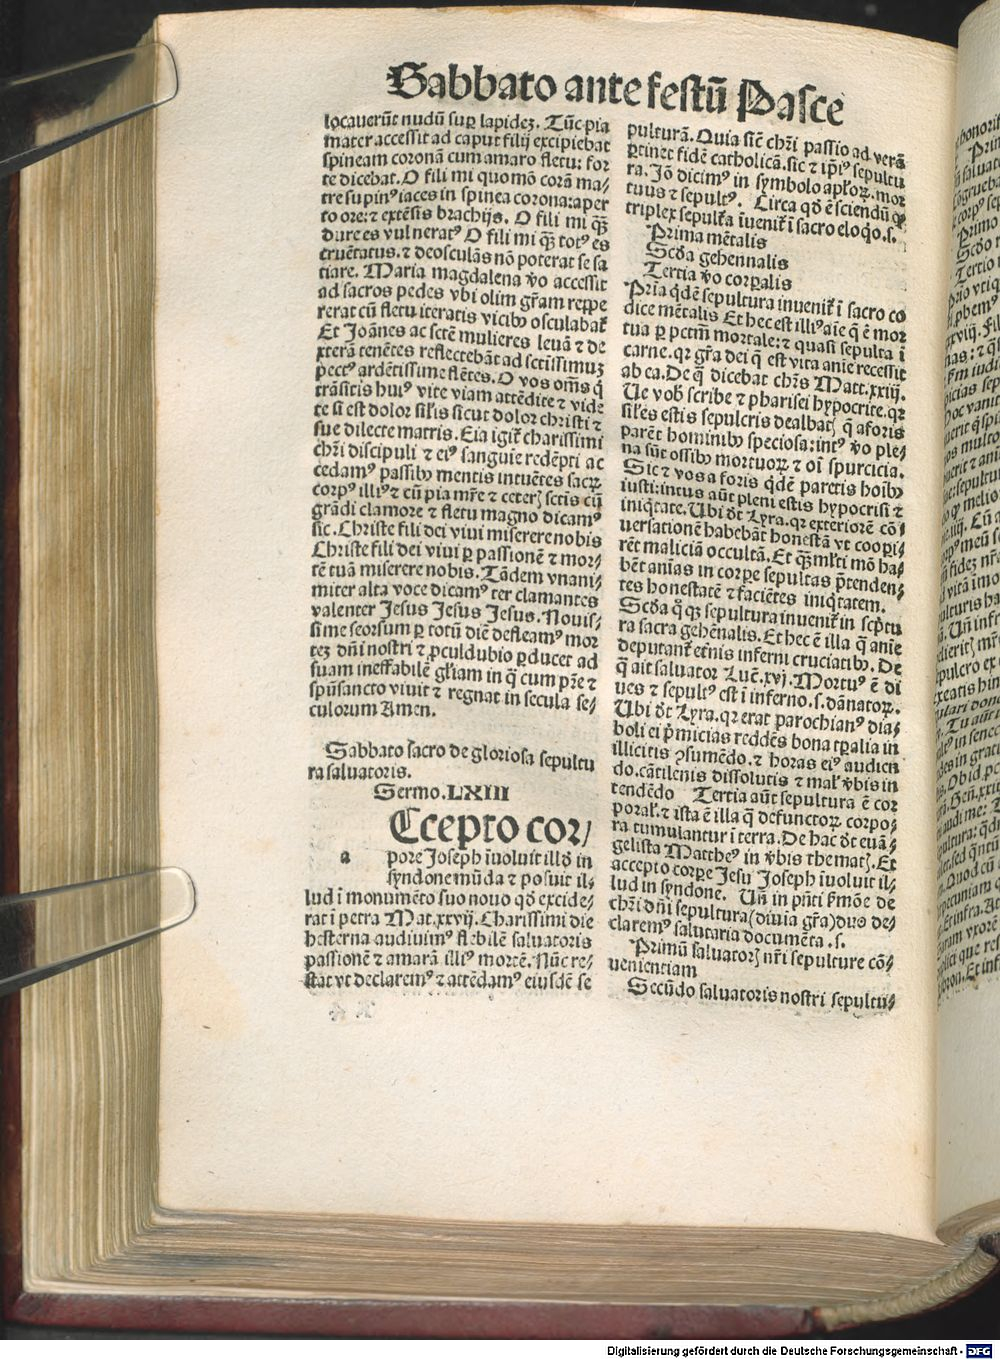 Sabbato ante festū Pasce
locauerūt nudū suꝑ lapidez. Tūc pia
mater accessit ad caput filij excipiebat
spineam coronā cum amaro fletu: for
te dicebat. O fili mi quo mō corā ma/
tre supinꝰ iaces in spinea corona: aper
to ore: ⁊ extēsis brachijs. O fili mi q̄ꝫ
dure es vulneratꝰ O fili mi q̄ꝫ totꝰ es
cruētatus. ⁊ deosculās nō poterat se sa
tiare. Maria magdalena ꝟo accessit
ad sacros pedes vbi olim gr̄am reꝑpe
rerat cū fletu iteratis vicibꝰ osculabat̄
Et Joānes ac sctē mulieres leuā ⁊ de
xterā tenētes reflectebāt ad sctissimuꝫ
pectꝰ ardētissime flētes. O vos om̄s q̄
trāsitis huiꝰ vite viam attēdite ⁊ vide
te si est dolor sil̄is sicut dolor christi ⁊
sue dilecte matris. Eia igit̄ charissimi
chr̄i discipuli ⁊ eiꝰ sanguie redēpti ac
cedamꝰ passibꝰ mentis intuētes sacꝝ
corpꝰ illiꝰ ⁊ cū pia mr̄e ⁊ ceterꝭ sctis cū
grādi clamore ⁊ fletu magno dicamꝰ
sic. Christe fili dei viui miserere nobis
Christe fili dei viui ꝑ passionē ⁊ mor/
tē tuā miserere nobis. Tādem vnani/
miter alta voce dicamꝰ ter clamantes
valenter Jesus Jesus Jesus. Nouis/
sime seorsum ꝑ totū diē defleamꝰ mor
teꝫ dn̄i nostri ⁊ ꝓculdubio ꝑducet ad
suam ineffabilē gl̄iam in q̄ cum pr̄e ⁊
spūsancto viuit ⁊ regnat in secula se/
culorum Amen.
Sabbato sacro de gloriosa sepultu
ra saluatoris.
Sermo. LXIII
a
Ccepto cor/
pore Joseph īuoluit illd̄ in
syndone mūda ⁊ posuit il/
lud ī monumēto suo nouo qd̄ excide/
rat ī petra Mat. xxvij. Charissimi die
hesterna audiuimꝰ flebilē saluatoris
passionē ⁊ amarā illiꝰ mortē. Nūc re/
stat vt declaremꝰ ⁊ attēdamꝰ eiusdē se
pulturā. Quia sic̄ chr̄i passio ad verā
ꝑtinet fidē catholicā. sic ⁊ ip̄iꝰ sepultu
ra. Jō dicimꝰ in symbolo apl̄oꝝ. mor
tuus ⁊ sepultꝰ. Circa qd̄ ē sciendū ꝙ
triplex sepult̄a īuenit̄ ī sacro eloq̄o. s.
Prima mētalis
Scd̄a gehennalis
Tertia ꝟo corꝑalis
Pria q̄dē sepultura inuenit̄ ī sacro co
dice mētalis Et hec est illiꝰ aīe q̄ ē mor
tua ꝑ pctm̄ mortale: ⁊ quasi sepulta ī
carne. qꝛ gr̄a dei q̄ est vita anīe recessit
ab ea. De q̄ dicebat chr̄s Matt. xxiij.
Ue vob̄ scribe ⁊ pharisei hypocrite. qꝛ
sil̄es estis sepulcris dealbatꝭ q̄ aforis
parēt hominibꝰ speciosa: intꝰ ꝟo ple/
na sūt ossibꝰ mortuoꝝ ⁊ oī spurcicia.
Sic ⁊ vos a foris q̄dē paretis hoībꝰ
iusti: intus aūt pleni estis hypocrisi ⁊
iniq̄tate. Ubi dt̄ Lyra. qꝛ exteriorē cō/
uersationē habebāt honestā vt coopi/
rēt maliciā occultā. Et q̄ꝫml̄ti mō ha/
bēt anīas in corꝑe sepultas p̄tenden/
tes honestatē ⁊ faciētes iniq̄tatem.
Scd̄a q̄q̄ꝫ sepultura inuenit̄ in scp̄tu
ra sacra gehēnalis. Et hec ē illa q̄ anīe
deputant̄ et̄nis inferni cruciatibꝰ. De
q̄ ait saluator Luc̄. xvj. Mortuꝰ ē di
ues ⁊ sepultꝰ est ī inferno. s. dānatoꝝ.
Ubi dt̄ Lyra. qꝛ erat parochianꝰ dia/
boli ei p̄micias reddēs bona tꝑalia in
illicitis ꝯsumēdo. ⁊ horas eiꝰ audien
do. cātilenis dissolutis ⁊ mal̄ ꝟbis in
tendēdo Tertia aūt sepultura ē cor
poral̄. ⁊ ista ē illa q̄ defunctoꝝ corpo/
ra tumulantur ī terra. De hac dt̄ euā/
gelista Mattheꝰ in ꝟbis thematꝭ. Et
accepto corꝑe Jesu Joseph īuoluit il/
lud in syndone. Un̄ in pn̄ti ẜmōe de
chr̄i dn̄i sepultura (diuīa gr̄a) duo de/
claremꝰ salutaria documēta. s.
Primū saluatorꝭ nr̄i sepulture cō/
uenientiam
Secūdo saluatoris nostri sepultu/
Digitalisierung gefördert durch die Deutsche Forschungsgemeinschaft - DFG